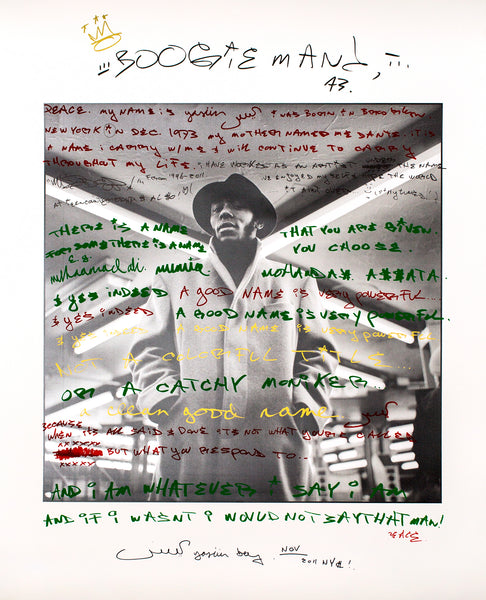 BOOGiE MAN!
A3.
PEACE. MY NAME iS yasiin I WAS BORN iN BROOKLYN
NEW YORK iN DEC. 1973 MY MOTHER NAMED ME DANTE. iT iS
A NAME i CARRY W/ME & WiLL CONTiNUE TO CARRY
THROUGHOUT MY LiFE. i HAVE WORKED AS AN ARTiST THE NAME
FROM 1996-2011 THE WORLD
THERE iS A NAME THAT YOU ARE GiVEN.
FOR SOME THERE iS A NAME YOU CHOOSE.
e.g.
muhammad ali. mumia. MOHANDAS. ASSATA.
& YES iNDEED A GOOD NAME iS VERY POWERFUL...
& YES iNDEED A GOOD NAME iS VERY POWERFUL...
& YES iNDEED A GOOD NAME iS VERY POWERFUL
NOT A COLORFUL TiTLE...
OR A CATCHY MONiKER...
a clean good name.
BECAUSE
WHEN iTS ALL SAiD & DONE iT'S NOT WHAT YOU'RE CALLED
XXXXXX
BUT WHAT YOU RESPOND TO..
XXXXY
AND i AM WHATEVER i SAY i AM
AND iF i WASNT i WOULD NOT SAY THAT MAN!
PEACE
yasiin bey NOV 2011 NYC!